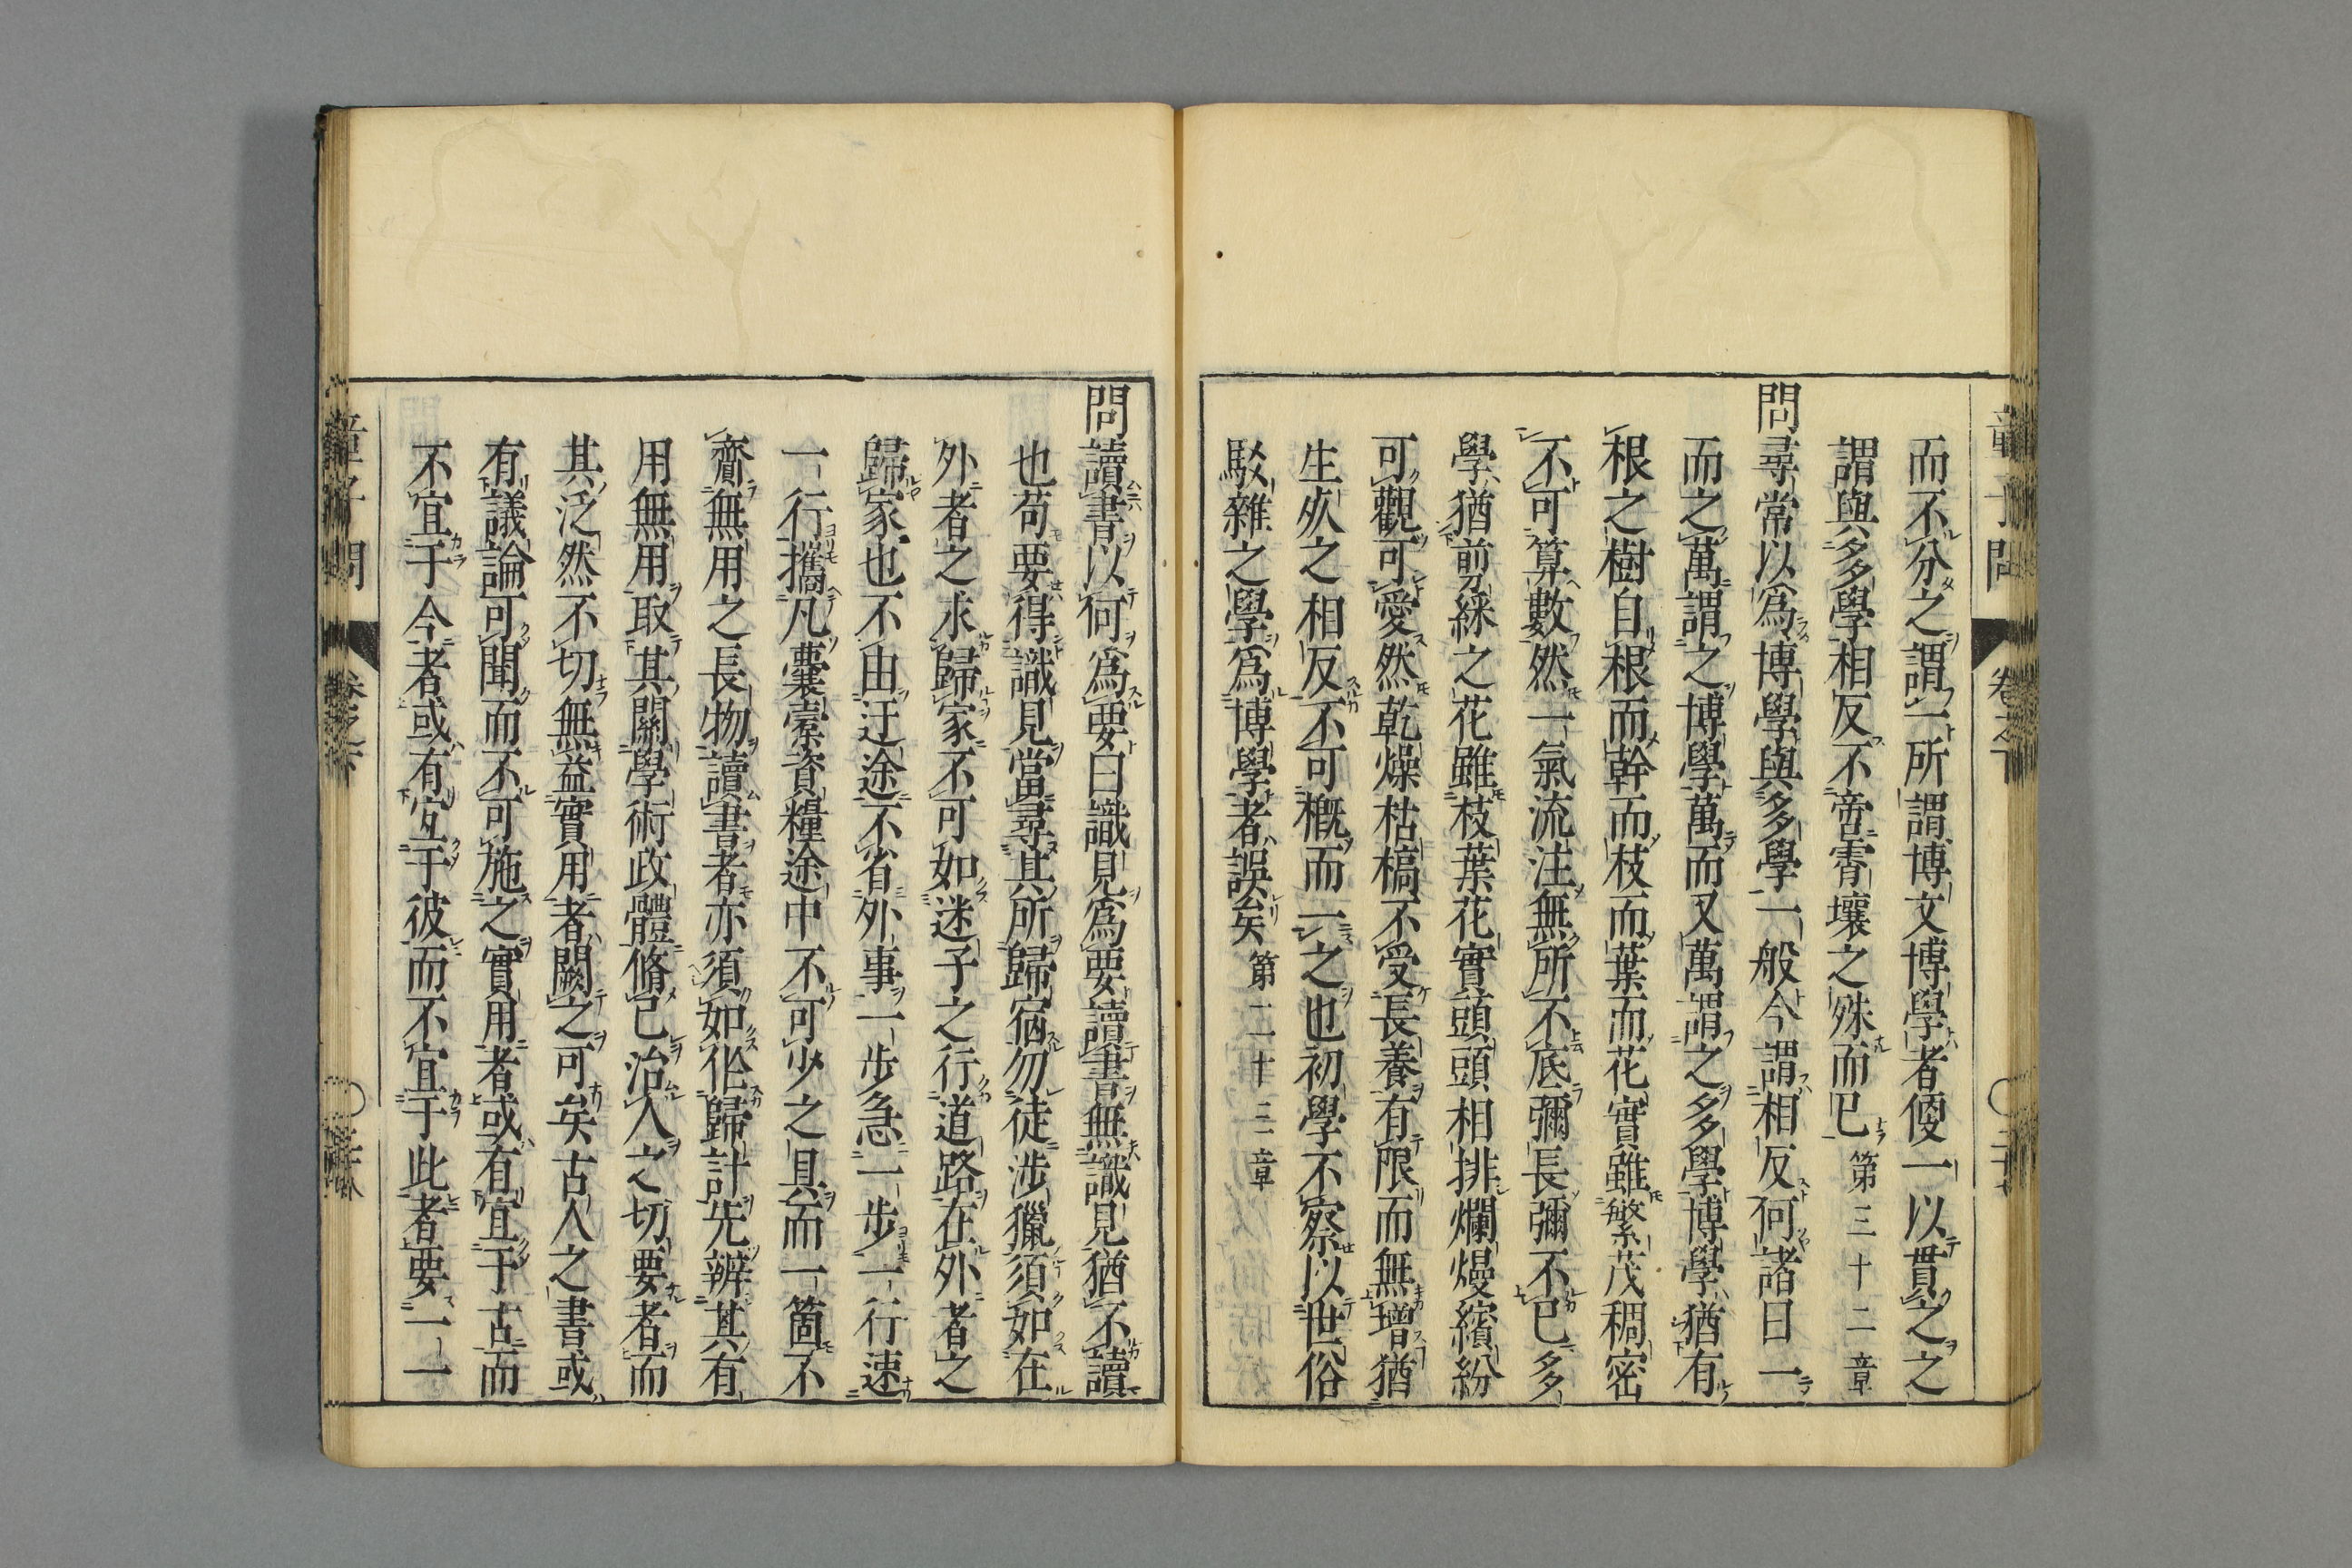 而不分之謂一所謂博文博學者便一以貫之之
謂與多學相反不啻霄壤之殊而已第三十二章
問尋常以爲博學與多學一般今謂相反何諸曰一
而之萬謂之博學萬而又萬謂之多學博學猶有
根之樹自根而幹而枝而葉而花實雖繁茂稠密
不可算數然一氣流注無所不底彌長彌不已多
學猶剪綵之花雖枝葉花實頭頭相排爛熳繽紛
可觀可愛然乾燥枯槁不受長養有限而無增猶
生死之相反不可概而一之也初學不察以世俗
駁雜之學爲博學者誤矣第二十三章
問讀書以何爲要曰識見爲要讀書無識見猶不讀
也苟要得識見當尋其所歸宿勿徒涉獵須如在
外者之求歸家不可如迷子之行道路在外者之
歸家也不由迂途不省外事一步急一步一行速
一行攜凡囊橐資糧途中不可少之具而一箇不
齎無用之長物讀書者亦須如作歸計先辨其有
用無用取其關學術政體脩己治人之切要者而
其泛然不切無益實用者闕之可矣古人之書或
有議論可聞而不可施之實用者或有宜于古而
不宜于今者或有宜于彼而不宜于此者要一一